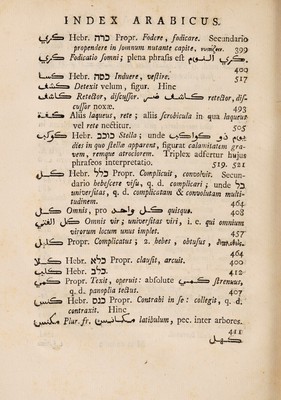 INDEX ARABICUS.
كري Hebr. כרה Propr. Fodere, fodicare. Secundario
propendere in somnum nutante capite, 399
كري Fodicatio somni; plena phrasis est كري النوم
400
كسا Hebr. כסה Induere, vestire. 517
كشف Detexit velum, figur. Hinc
كاشف Retector, discussor. كاشف ضر retector, dis-
cussor noxæ. 493
كفة Aliis laqueus, rete; aliis scrobicula in qua laqueus
vel rete nectitur. 505
كوكب Hebr. כוכב Stella; unde يوم ذو كواكب
dies in quo stellæ apparent, figurat calamitatem gra-
vem, remque atrociorem. Triplex adfertur hujus
phraseos interpretatio. 519. 521
كل Hebr. כלל Propr. Complicuit, convolvit. Secun-
dario hebescere visu, q. d. complicari; unde כל
universitas, q. d. complicatam & convolutam multi-
tudinem. 464
كل Omnis, pro كل واحد quisque. 408
كل الفتي Omnis vir; universitas viri, i. e. qui omnium
virorum locum unus implet. 457
كليل Propr. Complicatus; 2. hebes, obtusus,
464
كلا Hebr. כלא Propr. clausit, arcuit. 400
كلب Hebr. כלב. 412
كمي Propr. Texit, operuit: absolute كمي strenuus,
q. d. panoplia tectus. 407
كنس Hebr. כנס Propr. Contrahi in se: collegit, q. d.
contraxit. Hinc
مكنس Plur. fr. مكانس latibulum, pec. inter arbores.
411
كهل